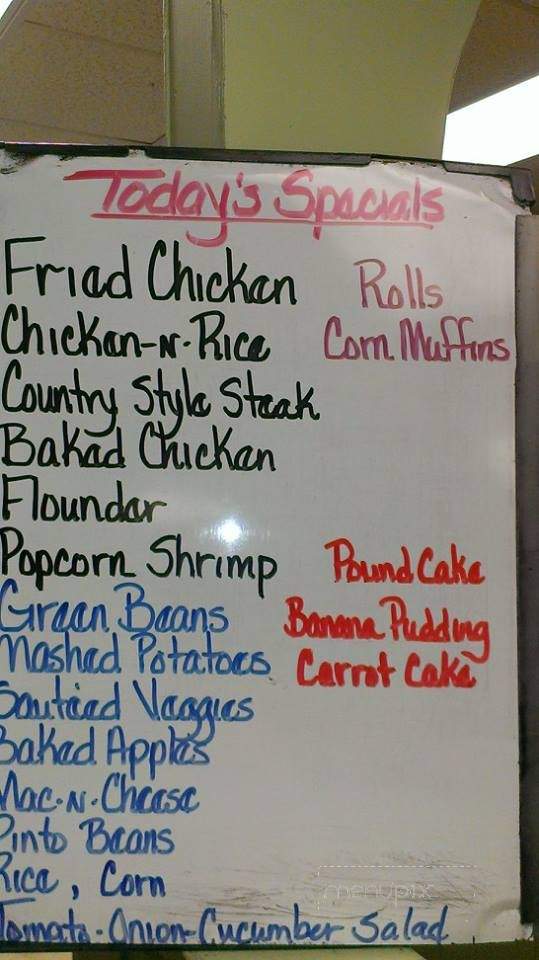 Today's Specials
Fried Chicken
Chicken-N-Rice
Country Style Steak
Baked Chicken
Flounder
Popcorn Shrimp
Green Beans
Mashed Potatoes
Sauteed Veggies
Baked Apples
Mac-N-Cheese
Pinto Beans
Rice, Corn
Tomato-Onion-Cucumber Salad
Rolls
Corn Muffins
Pound Cake
Banana Pudding
Carrot Cake
menupix